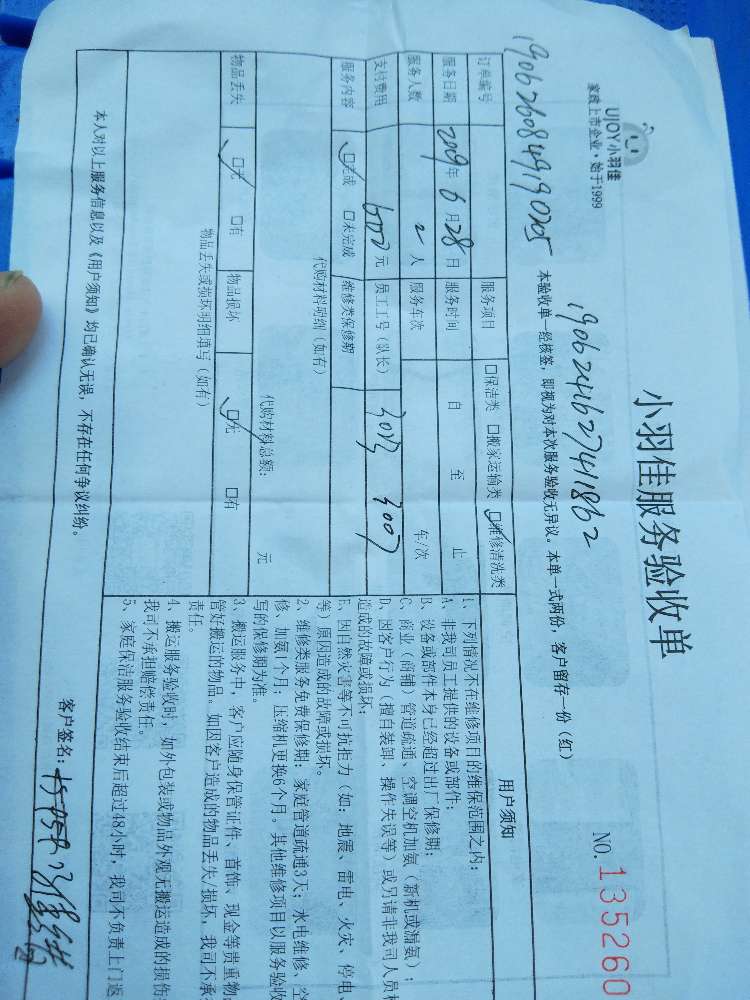 UJOY小羽佳
家政上市企业·始于1999
小羽佳服务验收单
NO. 135260
1906241627411862
本验收单一经核签，即视为对本次服务验收无异议。本单一式两份，客户留存一份（红）
订单编号 1906260849190205
服务项目 □保洁类 □搬家运输类 ☑维修清洗类
服务日期 2019年6月28日 服务时间 自 至 止
服务人数 2人 服务车次 车/次
支付费用 600元 员工工号（队长） 3007
服务内容 ☑完成 □未完成 维修类保修期
代购材料明细（如有）
代购材料总额： 元
物品丢失 ☑无 □有 物品损坏 ☑无 □有
物品丢失或损坏明细填写（如有）
本人对以上服务信息以及《用户须知》均已确认无误，不存在任何争议纠纷。
用户须知
1、下列情况不在维修项目的维保范围之内：
A、非我司员工提供的设备或部件；
B、设备或部件本身已经超过出厂保修期；
C、商业（商铺）管道疏通、空调空机加氨（新机或漏氨）；
D、因客户行为（擅自装卸、操作失误等）或另请非我司人员
造成的故障或损坏；
E、因自然灾害等不可抗拒力（如：地震、雷电、火灾、停电、
等）原因造成的故障或损坏。
2、维修类服务免费保修期：家庭管道疏通3天；水电维修、空
修、加氨1个月；压缩机更换6个月。其他维修项目以服务验收
写的保修期为准。
3、搬运服务中，客户应随身保管证件、首饰、现金等贵重物
管处搬运的物品。如因客户造成的物品丢失/损坏，我司不承
责任。
4、搬运服务验收时，如外包装或物品外观无搬运造成的损伤
我司不承担赔偿责任。
5、家庭保洁服务验收结束后超过48小时，我司不负责上门返
客户签名：